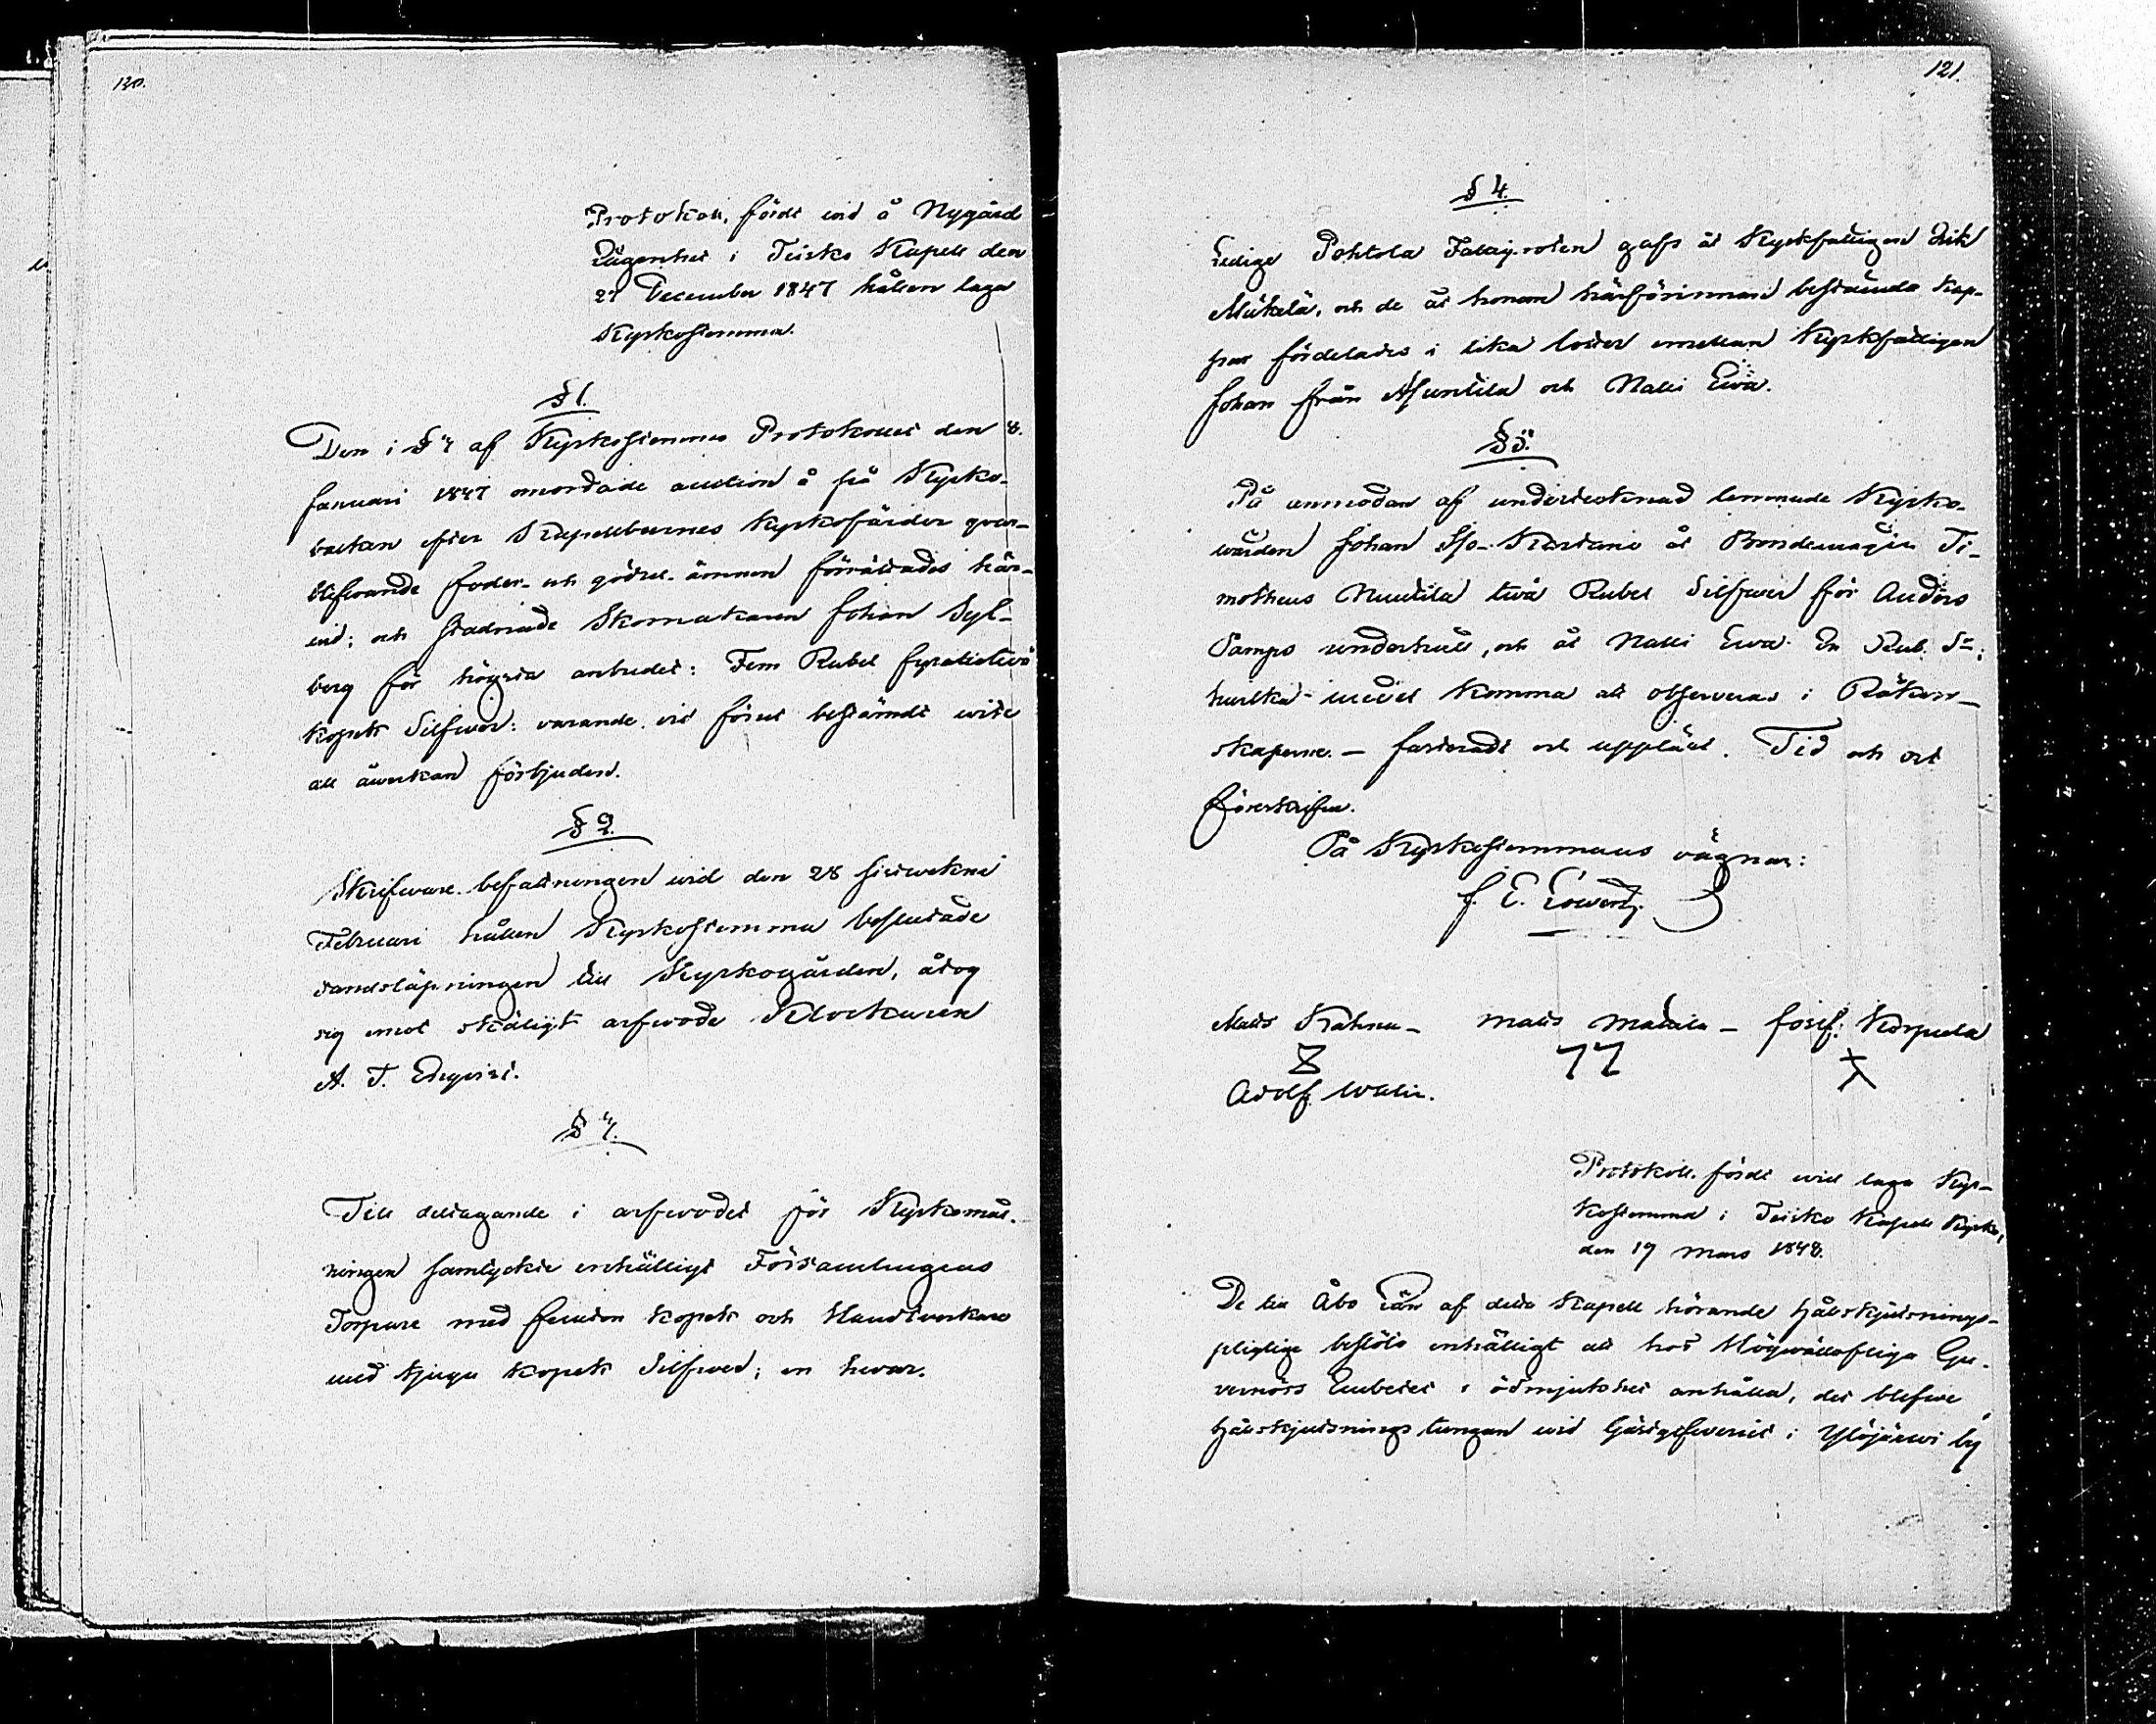 120.
Protokoll, fördt wid å Nygård
Lägenhet i Teisko Kapell den
27 December 1847 hållen laga
Kyrkostemma.
§ 1.
Den i § 4 af Kyrkostemmo Protokollet den 8.
Januari 1847 omordade auction å på Kyrko-
backan efter Kapellboernes kyrkofärder qvar-
blifwande foder- och gödsel-ämnen förrättades här-
wid; och stadnade Skomakaren Johan Syl-
berg för högsta anbudet: Fem Rubel fyratiotwå
kopek Silfwer: varande vid förut bestämdt wite
all åwerkan förbjuden.
§ 2.
Skrifware befattningen wid den 28 sistwekne
Februari hållen Kyrkostemma beslutade
sandsläpningen till Kyrkogården, åtog
sig emot skäligt arfwode Klockaren
A. F. Enqvist.
§ 4.
Till deltagande i arfwodet för Kyrkomål-
ningen samtyckte enhälligt Församlingens
Torpare med femton kopek och Handtverkare
med tjugu kopek Silfwer; en hwar.
121.
§ 4.
Lediga Pohtola Fattig-roten gafs åt Kyrkfattigen Erik
Mäkelä, och de åt honom härförinnan bestämda kap-
par fördelades i lika lotter emellan Kyrkfattigan
Johan från Asuntila och Malli Ewa.
§ 5.
På anmodan af undertecknad lemnade Kyrko-
wärden Johan Iso-Kartano åt Bondemågen Ti-
motheus Muntila twå Rubel Silfwer för Anders
Sampo underhåll, och åt Malli Ewa En Rub. Sr;
hwilka medel komma att observeras i Räken-
skaperne. — Justeradt och uppläst. Tid och ort
förutskrifne.
På Kyrkostemmans vägnar:
J. E. Lowentz.
Matts Kahna — Matts Mattila — Josef Korpula
Adolf Walin.
Protokoll, fördt wid laga Kyr-
kostemma i Teisko Kapells Kyrka,
den 19 Mars 1848.
De till Åbo Län af detta Kapell hörande hållskjutsnings-
pligtige beslöto enhälligt att hos Högwälloflige Gu-
vernörs Embetet i ödmjukhet anhålla, det blefwe
hållskjutsnings tungan wid Gästgifweriet i Ylöjärwi by